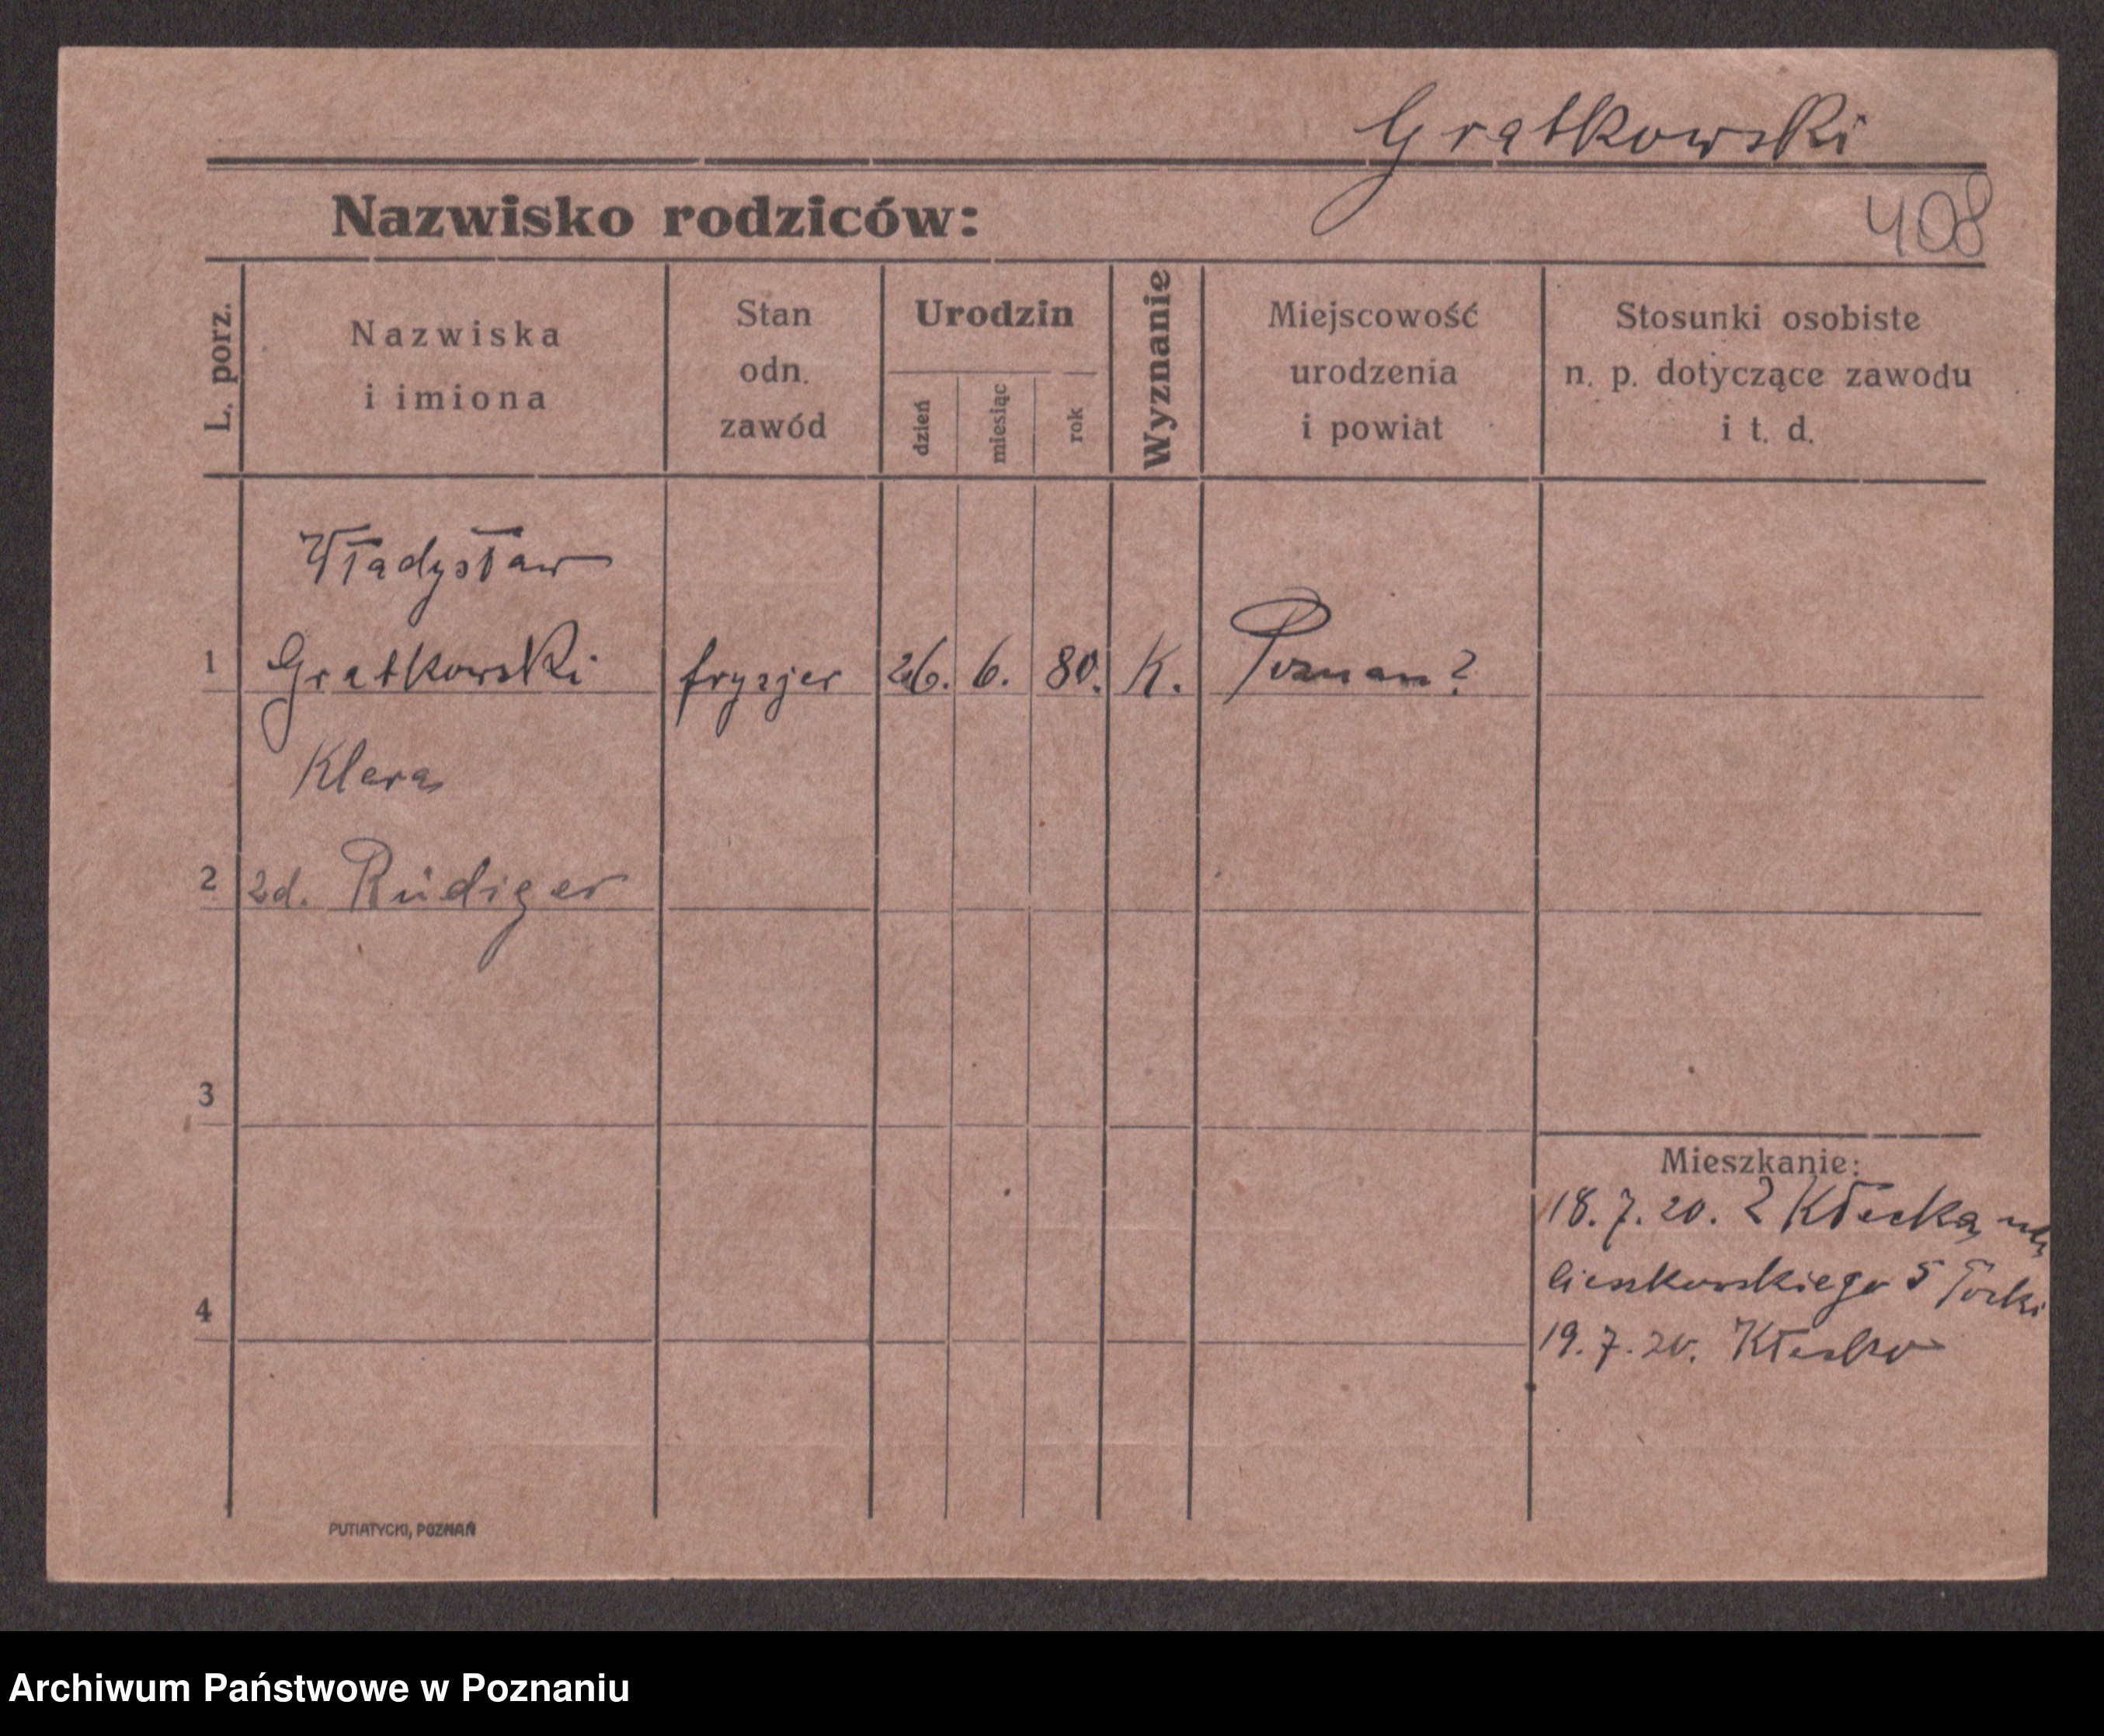 Grątkowski
Nazwisko rodziców:
408
L. porz.
Nazwiska
i imiona
Stan
odn.
zawód
Urodzin
dzień
miesiąc
rok
Wyznanie
Miejscowość
urodzenia
i powiat
Stosunki osobiste
n. p. dotyczące zawodu
i t. d.
Władysław
1 Grątkowski fryzjer 26. 6. 80. K. Poznan?
Klara
2 zd. Rüdiger
3
Mieszkanie:
18. 7. 20. Z Kłecka
Cieszkowskiego 5
4
19. 7. 20. Kłecko
PUTIATYCKI, POZNAŃ
Archiwum Państwowe w Poznaniu